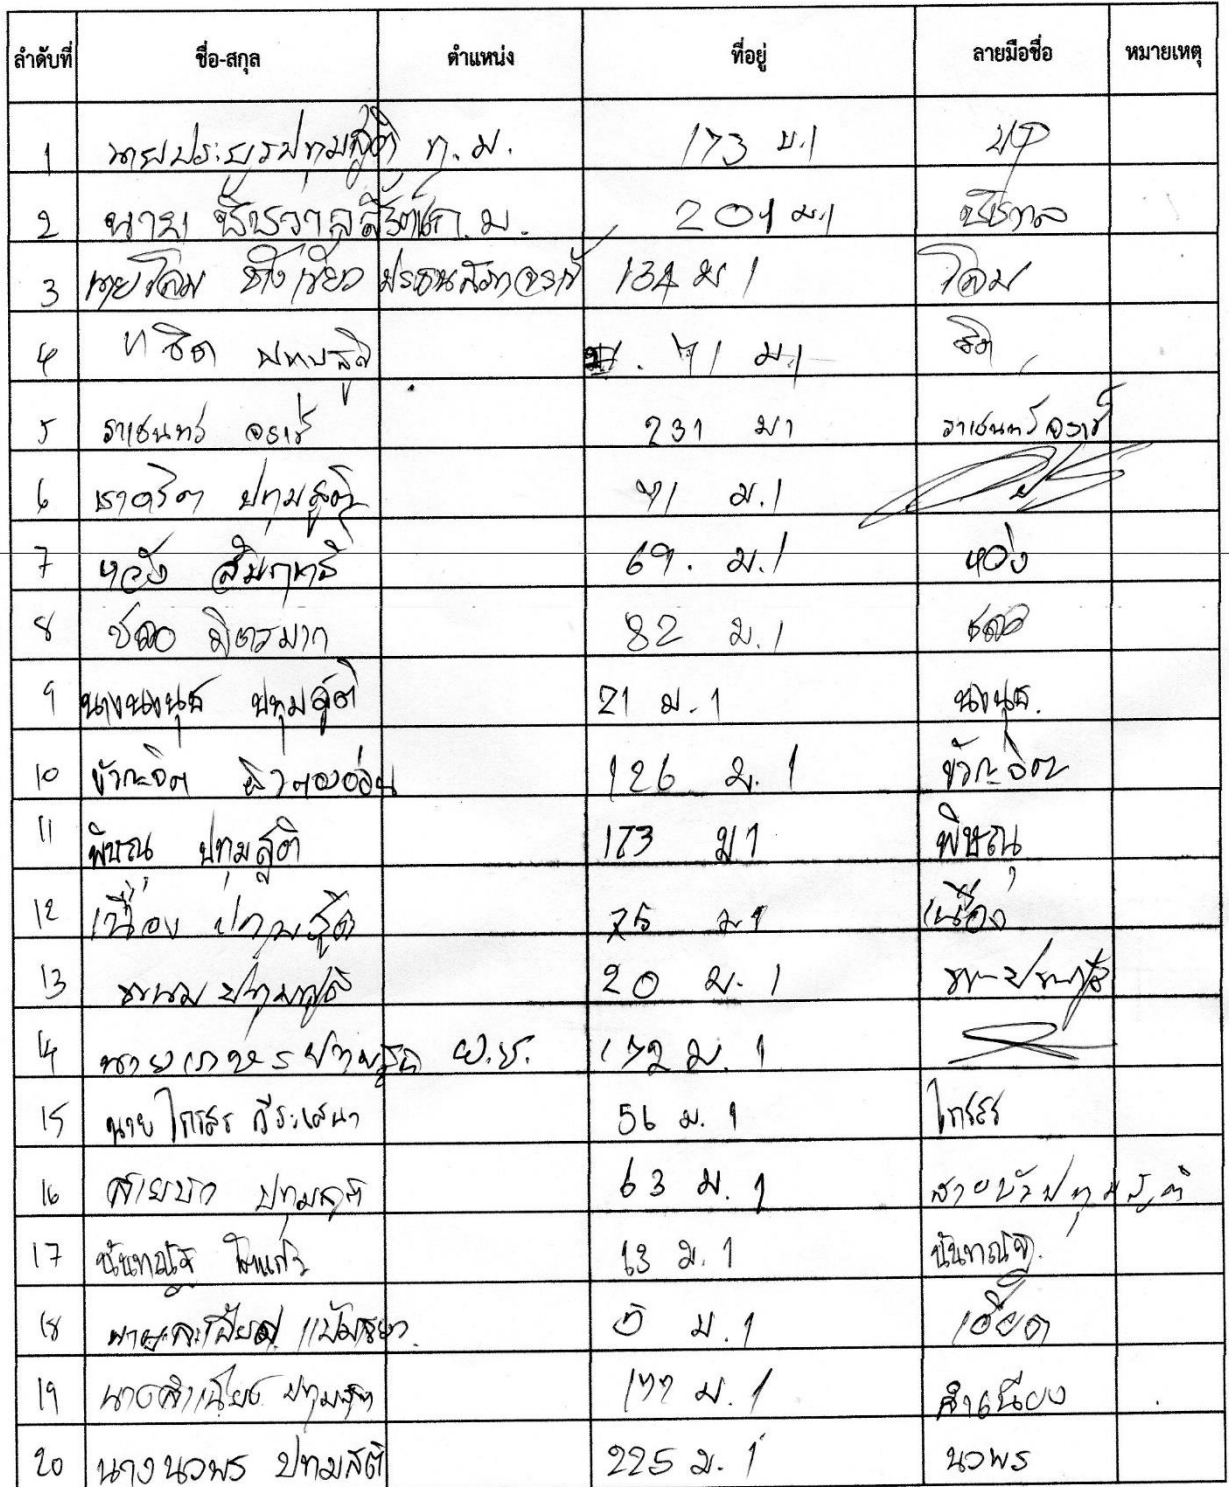 ลำดับที่ ชื่อ-สกุล ตำแหน่ง ที่อยู่ ลายมือชื่อ หมายเหตุ
1 นายประยูร ปทุมสูติ 173 ม.1
2 นาย ชัชวาล ก.ม. 201 ม.1 ชัชวาล
3 นายโฉม ประธานสภา 134 ม 1 โฉม
4 ปทุมสูติ 71 ม.1 ชิต
5 ราเชนทร์ จราช์ 231 ม1 ราเชนทร์ จราช์
6 ปทุมสูติ 71 ม.1
7 หวัง สัมฤทธิ์ 69. ม.1 หวัง
8 ชลอ มิตรมาก 82 ม.1 ชลอ
9 นางนงนุช ปทุมสูติ 21 ม.1 นงนุช.
10 ขวัญจิต ผิวทองอ่อน 126 ม. 1 ขวัญจิต
11 พิษณุ ปทุมสูติ 173 ม1 พิษณุ
12 เนื่อง ปทุมสูติ 75 ม1 เนื่อง
13 ปทุมสูติ 20 ม. 1
14 นาย ปทุมสูติ ผ.ช. 172 ม. 1
15 นาย ไกรสร วีระเสนา 56 ม. 1 ไกรสร
16 สายบัว ปทุมสูติ 63 ม. 1 สายบัว ปทุมสูติ
17 นันทณัฐ 13 ม. 1 นันทณัฐ.
18 นายละเอียด 5 ม. 1
19 นางสำเนียง ปทุมสูติ 177 ม. 1 สำเนียง
20 นางนวพร ปทุมสูติ 225 ม. 1 นวพร